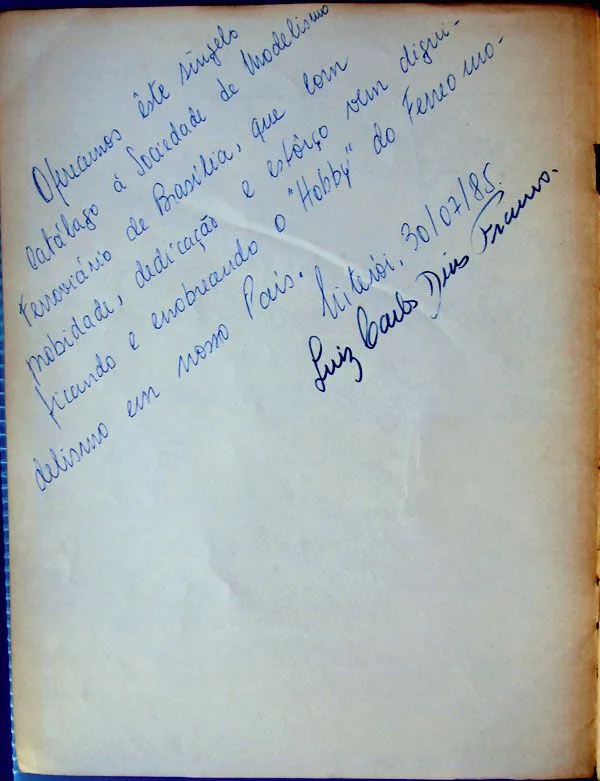 Oferecemos êste singelo
catálago á Sociedade de Modelismo
Ferroviário de Brasília, que com
probidade, dedicação e esfôrço vem digni-
ficando e enobrecendo o "Hobby" do Ferreomo-
delismo em nosso País.
Niterói, 30/07/85.
Luiz Carlos Dias